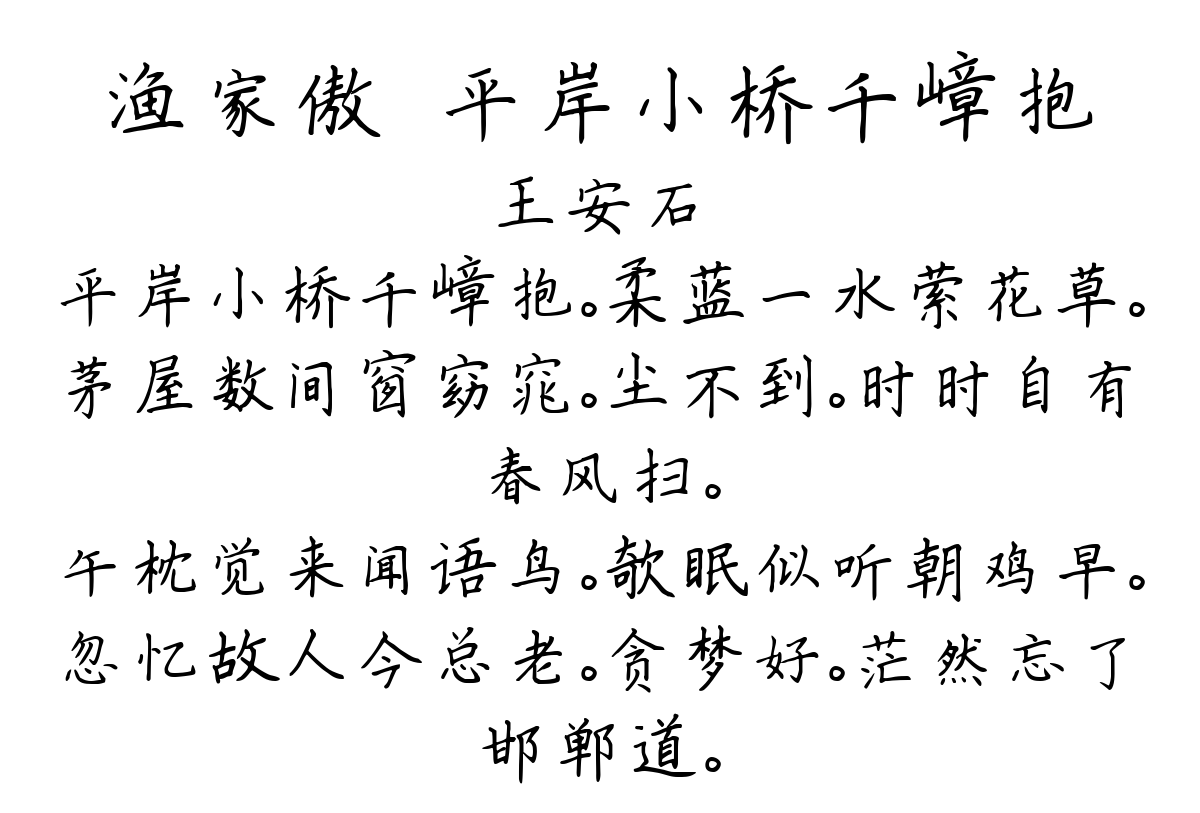 渔家傲 平岸小桥千嶂抱
王安石
平岸小桥千嶂抱。柔蓝一水萦花草。
茅屋数间窗窈窕。尘不到。时时自有
春风扫。
午枕觉来闻语鸟。欹眠似听朝鸡早。
忽忆故人今总老。贪梦好。茫然忘了
邯郸道。